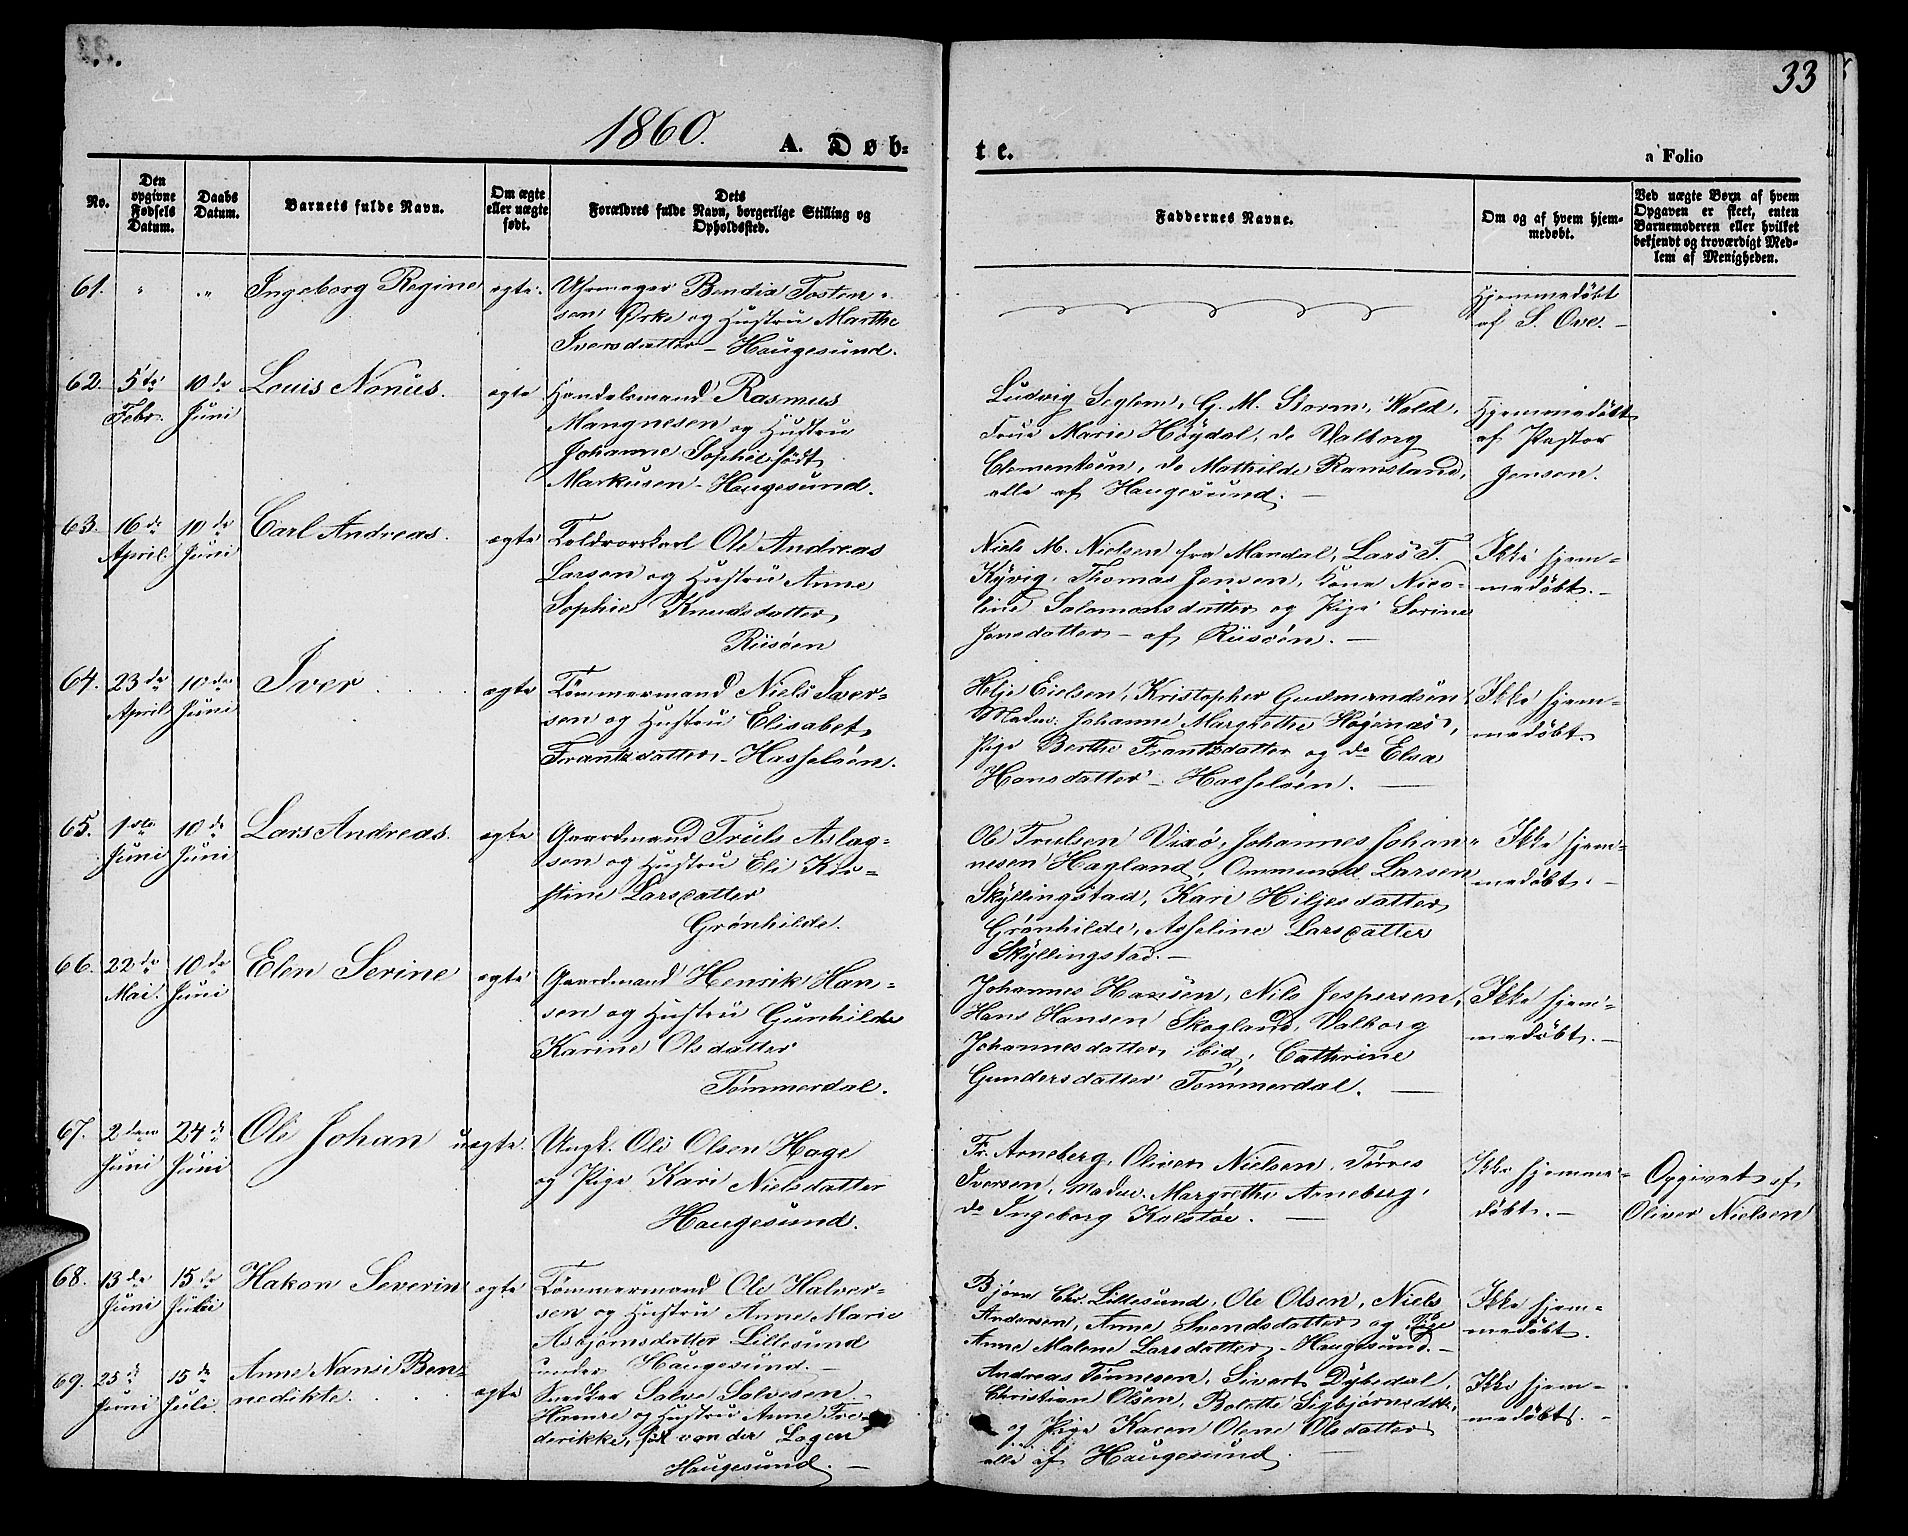 33
1860.
A. Døb-
te.
a Folio
No.
Den opgivne Fødsels Datum.
Daabs Datum.
Barnets fulde Navn.
Om ægte eller uægte født.
Dets Forældres fulde Navn, borgerlige Stilling og Opholdssted.
Faddernes Navne.
Om og af hvem hjemmedøbt.
Ved uægte Børn af hvem Opgaven er skeet, enten Barnemoderen eller hvilket bekjendt og troværdigt Medlem af Menigheden.
61. " " Ingeborg Regine ægte.
Uhrmager Bendix Tosten-
sen Ørke og Hustru Marthe
Iversdatter – Haugesund.
Hjemmedøbt
af S. Ove. –
62. 5te Febr. 10de Juni Louis Nonus. ægte
Handelsmand Rasmus
Mangnesen og Hustru
Johanne Sophie født
Markusen – Haugesund.
Ludvig Seglem, G. M. Storm, Wold,
Frue Marie Høydal, do Valborg
Clementsen, do Mathilde Ramsland,
alle af Haugesund. –
Hjemmedøbt
af Pastor
Jensen.
63. 16de April. 10de Juni Carl Andreas. ægte
Toldrorskarl Ole Andreas
Larsen og Hustru Anne
Sophie Knudsdatter,
Risøen
Niels M. Nielsen fra Mandal, Lars T.
Kyvig, Thomas Jensen, Kone Nico-
line Salamonsdatter og Pige Serine
Jensdatter – af Risøen. –
Ikke hjem-
medøbt. –
64. 23de April 10de Juni Iver ægte
Tømmermand Niels Iver-
sen og Hustru Elisabet
Frantzdatter – Hasseløen.
Helje Eielsen, Kristopher Gudmundsen,
Madm. Johanne Margrethe Hagenæs,
Pige Berthe Frantzdatter og do Elsa
Hansdatter – Hasseløen. –
Ikke hjem-
medøbt.
65. 1ste Juni 10de Juni Lars Andreas. ægte
Gaardmand Truls Aslag-
sen og Hustru Eli Kir-
stine Larsdatter
Grønhilde.
Ole Trulsen Vixø, Johannes Johan-
nesen Hagland, Ommund Larsen
Skyllingstad, Kari Hiljesdatter
Grønhilde, Asseline Larsdatter
Skyllingstad. –
Ikke hjem-
medøbt. –
66. 22de Mai. 10de Juni Elen Serine ægte
Gaardmand Henrik Han-
sen og Hustru Gunhilde
Karine Olsdatter
Tømmerdal.
Johannes Hansen, Nils Jespersen,
Hans Hansen Skogland, Valborg
Johannesdatter, ibid, Cathrine
Gundersdatter Tømmerdal. –
Ikke hjem-
medøbt. –
67. 2den Juni 24de Juni Ole Johan uægte.
Ungk. Ole Olsen Hage
og Pige Kari Nielsdatter
Haugesund.
Fr. Arneberg, Oliver Nielsen, Tørres
Iversen, Madm. Margrethe Arneberg,
do Ingeborg Kolstøe. –
Ikke hjemme-
døbt. –
Opgivet af
Oliver Nielsen
68. 13de Juni 15de Juli Hakon Severin ægte
Tømmermand Ole Halver-
sen og Hustru Anne Marie
Asbjørnsdatter Lillesund
under Haugesund. –
Bjørn Chr. Lillesund, Ole Olsen, Niels
Andersen, Anne Svendsdatter og Pige
Anne Malene Larsdatter – Haugesund. –
Ikke hjem-
medøbt.
69. 25de Juni 15de Juli. Anne Nansi Ben-
nedikte. ægte
Snedker Salve Salvesen
Hamre og Hustru Anne Fre-
derikke, født van der Lagen
Haugesund. –
Andreas Tønnesen, Sivert Dybedal,
Christian Olsen, Bolette Sigbjørnsdtr.
og Pige Karen Olene Olsdatter
alle af Haugesund.
Ikke hjem-
medøbt. –